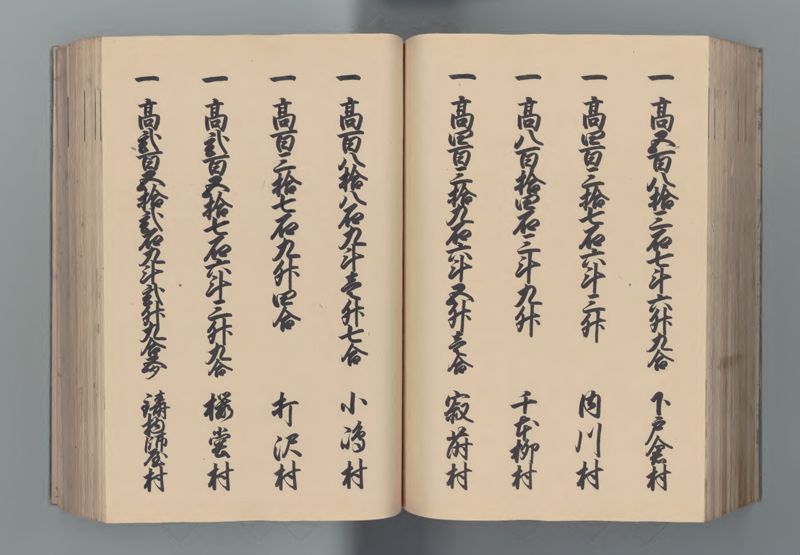 一 高五百八拾三石七斗六升九合 下戸倉村
一 高四百三拾七石六斗三升 内川村
一 高八百拾四石三斗九升 千本柳村
一 高四百三拾九石六斗五升壱合 寂蒔村
一 高百八拾八石九斗壱升七合 小嶋村
一 高百三拾七石九升四合 打沢村
一 高弐百五拾七石六斗三升九合 桜堂村
一 高弐百五拾弐石九斗弐升九合 鋳物師屋村